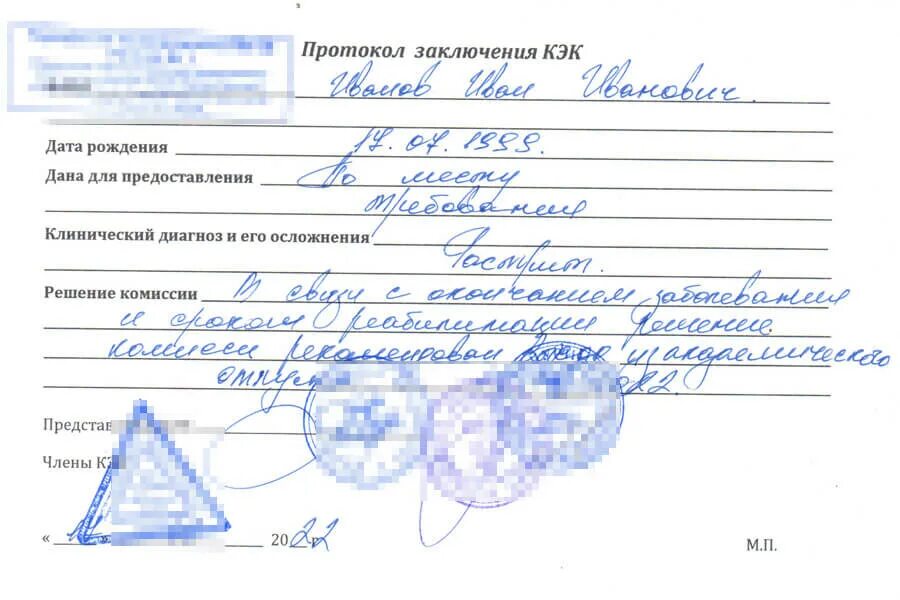 Протокол заключения КЭК
Иванов Иван Иванович.
Дата рождения 17.07.1999.
Дана для предоставления По месту
требования
Клинический диагноз и его осложнения
Гастрит.
Решение комиссии В связи с окончанием заболевания
и сроком реабилитации Решение
комисси рекомендован из академического
Представ
Члены К
« » 2022 г
М.П.